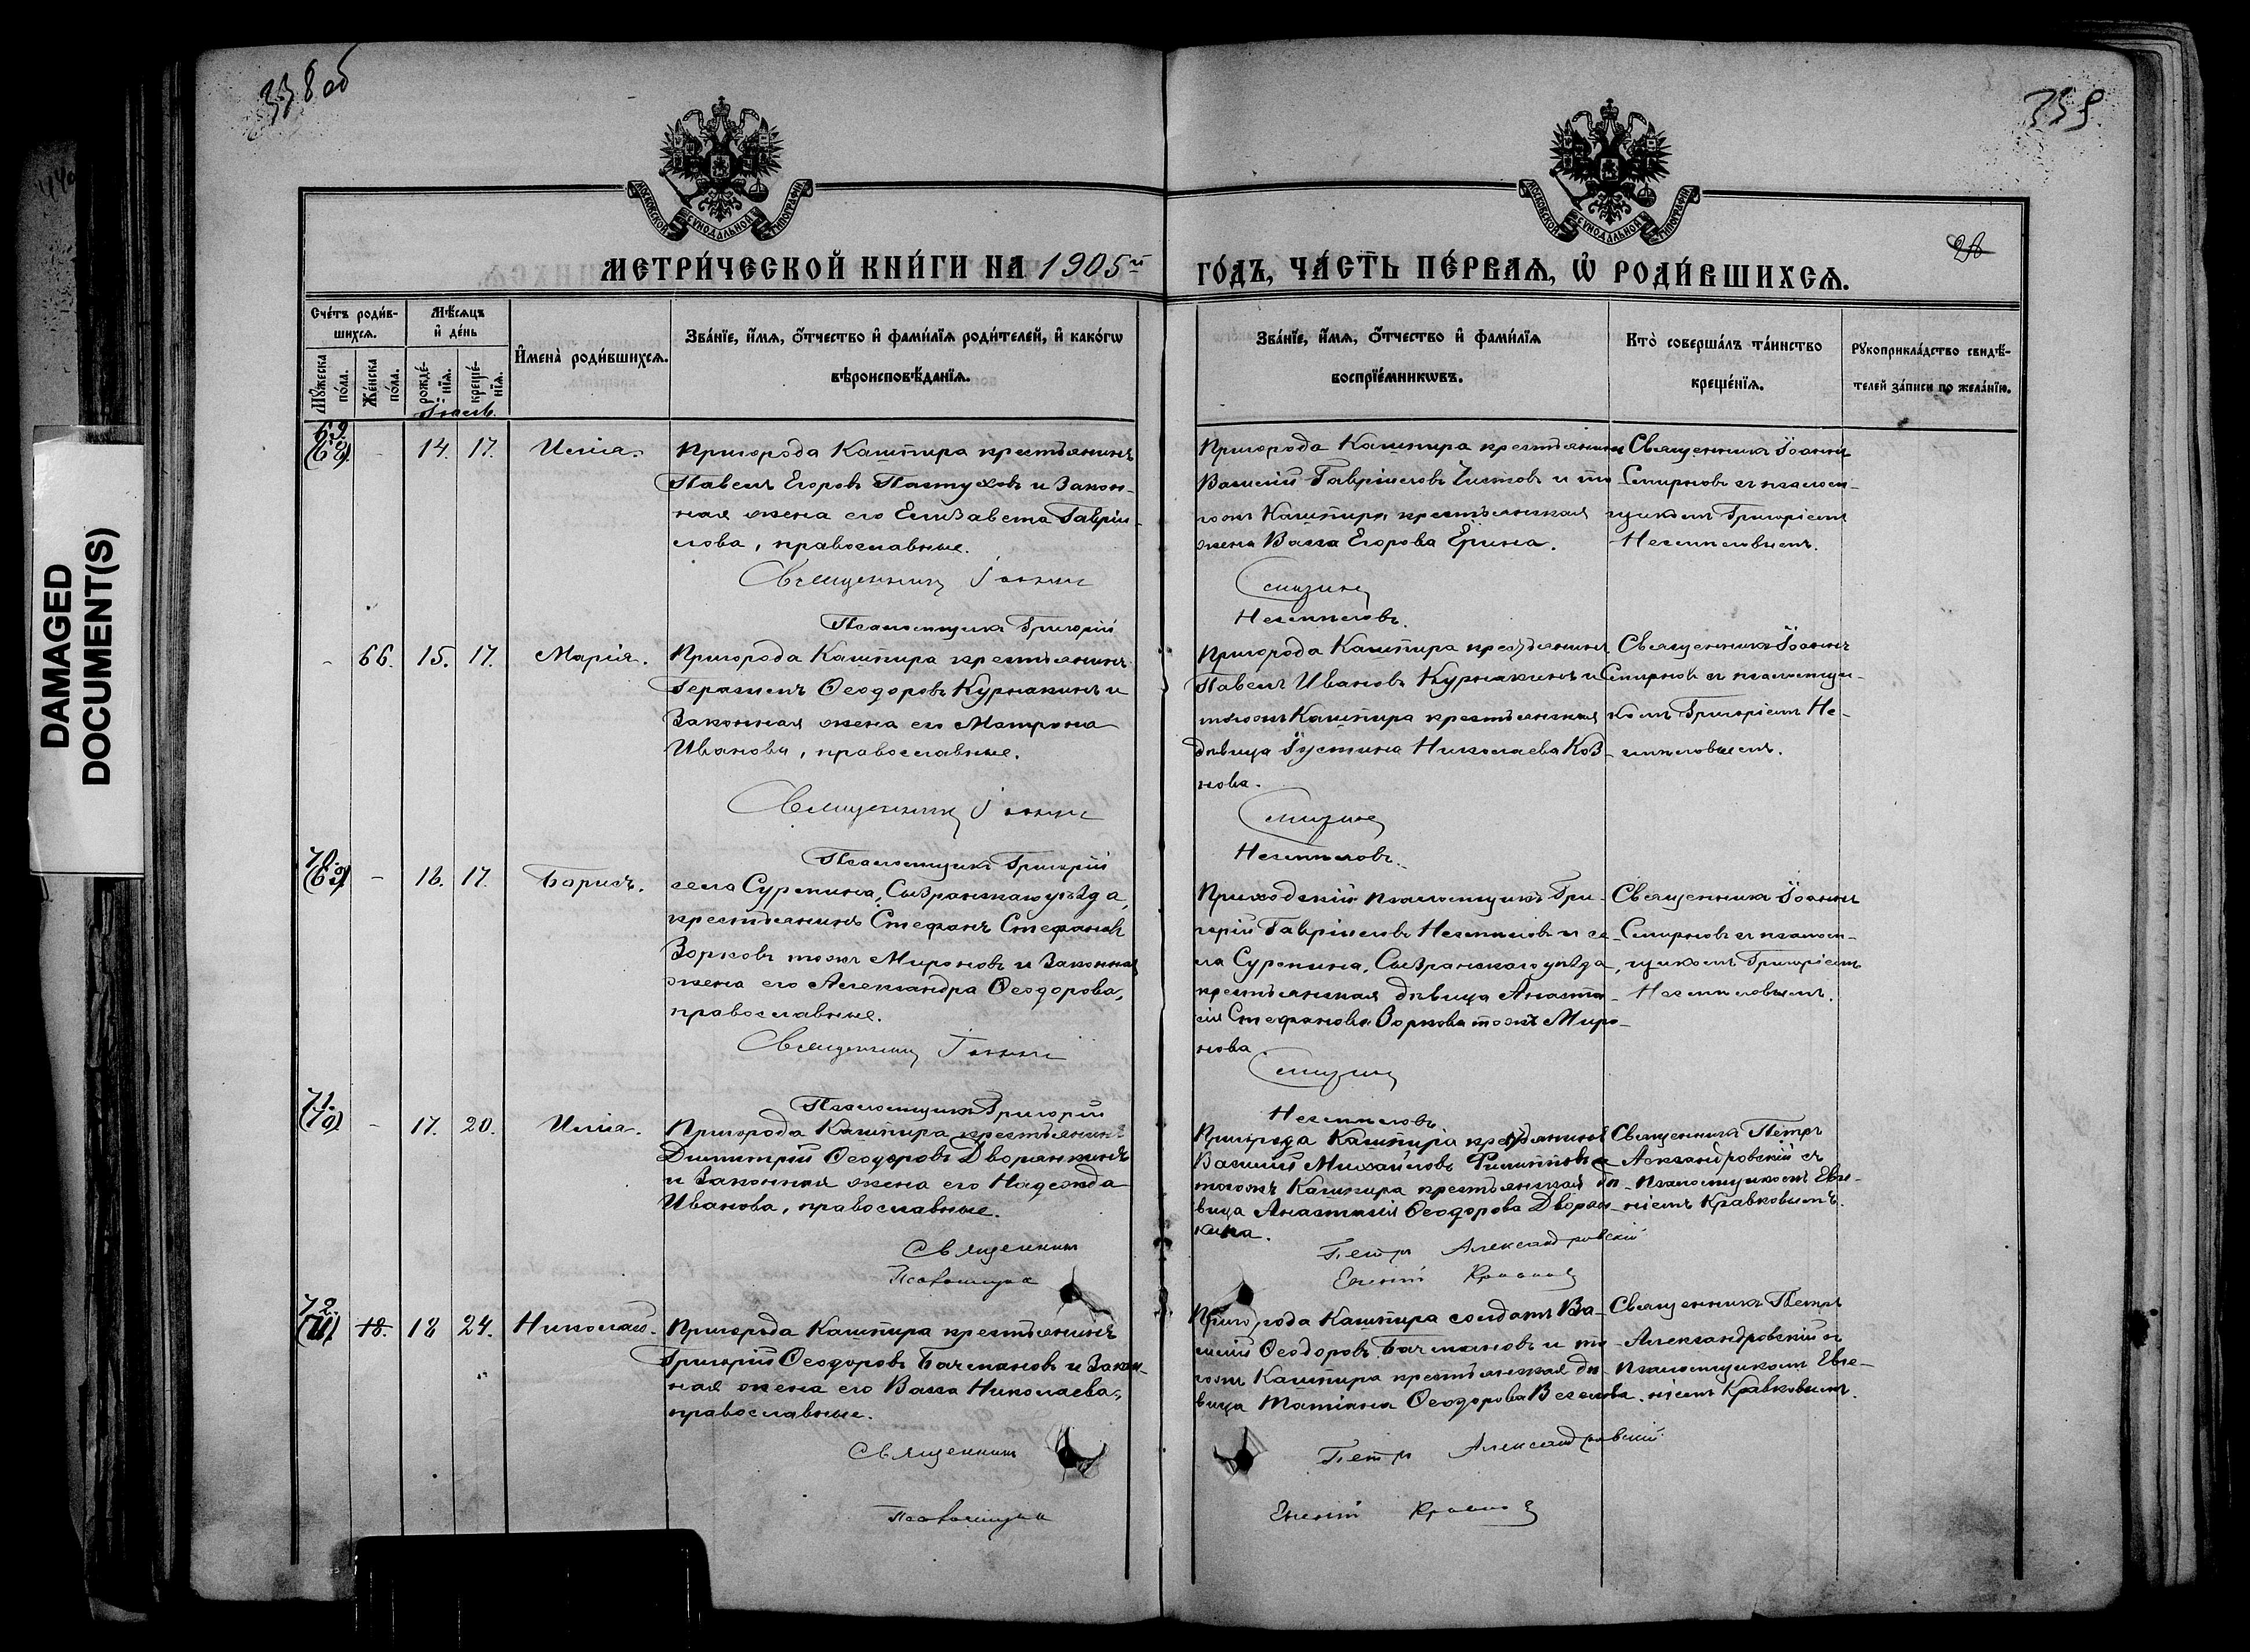 338 об
339
DAMAGED
DOCUMENT(S)
МОСКОВСКОЙ СѴНОДАЛЬНОЙ ТИПОГРАФІИ
МОСКОВСКОЙ СѴНОДАЛЬНОЙ ТИПОГРАФІИ
МЕТРИ́ЧЕСКОЙ КНИ́ГИ НА 1905й
ГО́ДЪ, ЧА́СТЬ ПЕ́РВАѦ, Ѡ҆ РОДИ́ВШИХСѦ.
Сче́тъ роди́в-
шихсѧ.
Мꙋ́жеска по́ла.
Же́нска по́ла.
Мѣ́сѧцъ
и҆ де́нь
рожде́-нїѧ.
креще́-нїѧ.
И҆мена̀ роди́вшихсѧ.
Зва́нїе, и҆́мѧ, ѻ҆́тчество и҆ фами́лїѧ роди́телей, и҆ како́гѡ
вѣроисповѣ́данїѧ.
Зва́нїе, и҆́мѧ, ѻ҆́тчество и҆ фами́лїѧ
воспрїе́мникѡвъ.
Кто̀ соверша́лъ та́инство
креще́нїѧ.
Рꙋкоприкла́дство свидѣ́-
телей за́писи по жела́нїю.
Іюль.
69.
(68) - 14. 17. Илія.
Пригорода Кашпира крестьянинъ
Павелъ Егоровъ Пастуховъ и закон-
ная жена его Елизавета Гаврiи-
лова, православные.
Священникъ Іоаннъ
Псаломщикъ Григорій
Пригорода Кашпира крестьянинъ
Василій Гавріиловъ Чистовъ и то-
гожъ Кашпира крестьянская
жена Васса Егорова Ерина.
Смирнов
Несмѣловъ.
Священникъ Іоаннъ
Смирновъ съ псалом-
щикомъ Григоріемъ
Несмѣловымъ.
- 66. 15. 17. Марія.
Пригорода Кашпира крестьянинъ
Герасимъ Ѳеодоровъ Курнакинъ и
законная жена его Матрона
Иванова, православные.
Священникъ Іоаннъ
Псаломщикъ Григорій
Пригорода Кашпира крестьянинъ
Павелъ Ивановъ Курнакинъ и
тогожъ Кашпира крестьянская
дѣвица Іустина Николаева Коз-
нова.
Смирнов
Несмѣловъ.
Священникъ Іоаннъ
Смирновъ съ псаломщи-
комъ Григоріемъ Не-
смѣловымъ.
70.
(69) - 16. 17. Борисъ.
села Суренина, Сызранскаго уѣзда,
крестьянинъ Стефанъ Стефановъ
Зорковъ тожъ Мироновъ и законная
жена его Александра Ѳеодорова,
православные.
Священникъ Іоаннъ
Псаломщикъ Григорій
Приходскій псаломщикъ Гри-
горій Гавріиловъ Несмѣловъ и се-
ла Суренина, Сызранскаго уѣзда,
крестьянская дѣвица Анаста-
сія Стефанова Зоркова тожъ Миро-
нова.
Смирнов
Несмѣловъ
Священникъ Іоаннъ
Смирновъ съ псалом-
щикомъ Григоріемъ
Несмѣловымъ.
71.
(70) - 17. 20. Илія.
Пригорода Кашпира крестьянинъ
Димитрій Ѳеодоровъ Дворянкинъ
и законная жена его Надежда
Иванова, православные.
Священникъ
Псаломщикъ
Пригорода Кашпира крестьянинъ
Василій Михайловъ Филипповъ и
тогожъ Кашпира крестьянская дѣ-
вица Анастасія Ѳеодорова Дворян-
кина.
Петръ Александровскій
Евгеній Кравковъ
Священникъ Петръ
Александровскій съ
псаломщикомъ Евге-
ніемъ Кравковымъ.
72.
(71) 18. 18 24. Николай.
Пригорода Кашпира крестьянинъ
Григорій Ѳеодоровъ Бачмановъ и закон-
ная жена его Васса Николаева,
православные.
Священникъ
Псаломщикъ
Пригорода Кашпира солдатъ Ва-
силій Ѳеодоровъ Бачмановъ и то-
гожъ Кашпира крестьянская дѣ-
вица Татіана Ѳеодорова Веселова.
Петръ Александровскій
Евгеній Кравковъ
Священникъ Петръ
Александровскій съ
псаломщикомъ Евге-
ніемъ Кравковымъ.